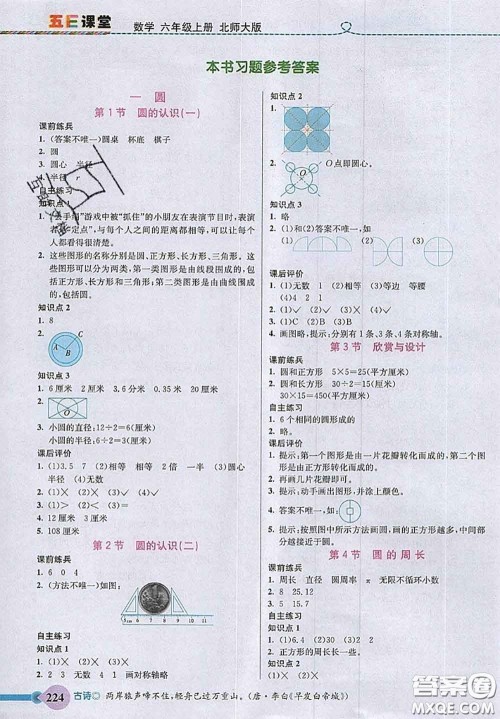 五E课堂 数学 六年级上册 北师大版
本书习题参考答案
一 圆
第1节 圆的认识(一)
课前练兵
1. (答案不唯一)圆桌 杯底 棋子
2. 圆
3. 圆心 半径
4. 半径 r
自主练习
知识点1
1. “丢手绢”游戏中被“抓住”的小朋友在表演节目时,表演
者“定点”,与每个人之间的距离都相等,可以让每个人
都看得很清楚。
2. 这些图形的名称分别是圆、正方形、长方形、三角形。这
些图形可以分为两类。第一类是由线段围成的,包
括正方形、长方形和三角形;第二类图形是由曲线围成
的,包括圆。
知识点2
1. 8
2.
A B O
知识点3
1. 6厘米 2厘米 3.6分米 0.35厘米 20厘米
2.
O
3. 小圆的直径:12÷2=6(厘米)
小圆的半径:6÷2=3(厘米)
课后评价
1. (1)3.5 7 (2)相等 相等 一半 (3)6
(4)圆心 半径 (5)3
2. (1)3 (2)1 (3)4 (4)无数
3. (1)× (2)× (3)√ (4)×
4. 12厘米 3厘米
5. 18厘米 9厘米
第2节 圆的认识(二)
课前练兵
1. 6 0 4
2. (方法不唯一)如图:
自主练习
知识点1
1. 无数 4 1 画对称轴略
2. (1)× (2)√ (3)×
知识点2
1.
2. O点即圆心。
知识点3
1. 略
2. (1)和(2)答案不唯一,如:
(1) (2)
3. (3)
课后评价
1. (1)无数 1 (2)4 (3)等边 等腰
2. (1)√ (2)√ (3)× (4)×
3. (1)√ (2)√ (3)√ (4)√
4. 画图略,提示:分别有1条、3条、4条对称轴。
第3节 欣赏与设计
课前练兵
1. 圆和正方形 5×5=25(平方厘米)
2. 圆和长方形 30÷2=15(厘米)
30×15=450(平方厘米)
自主练习
1. 6个相同的圆形成的
2. 略。
课后评价
1. 提示:第一个图形是由一片花瓣转化而成的、第二个图
形是由正方形转化而成的。
2. 再画几片花瓣即可。
3. 提示:动手画出图形,并涂上颜色。
4. 答案不唯一,如:
5. 提示:按照图中所示方法画圆,圆或半圆组合起来即
可。
第4节 圆的周长
课前练兵
1. 周长 直径 圆周率 π 无限不循环小数
2. (1)√ (2)× (3)√
自主练习
224 古诗◎ 两岸猿声啼不住,轻舟已过万重山。(唐·李白《早发白帝城》)
答案圈
MXQE.COM